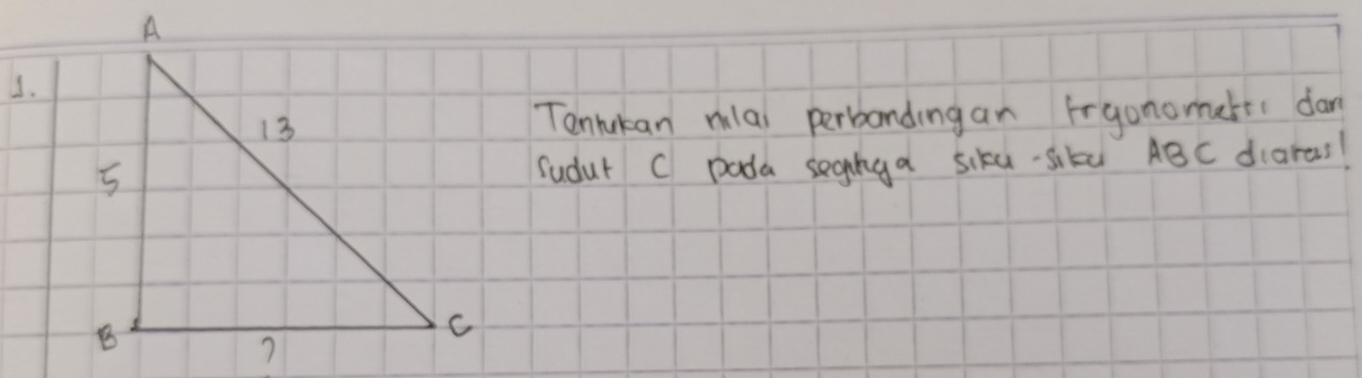 A
1.
13
Tentukan nilai perbandingan trgonometri dari
5
sudut C pada segitiga siku-siku ABC diatas!
B
C
?